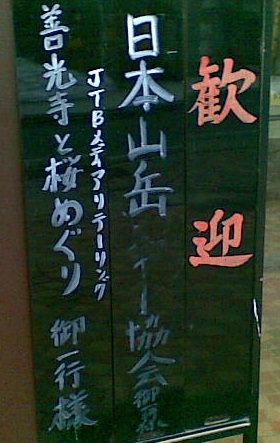 歓迎
日本山岳スキー協会御一行様
JTBメディアリテーリング
善光寺と桜めぐり 御一行様